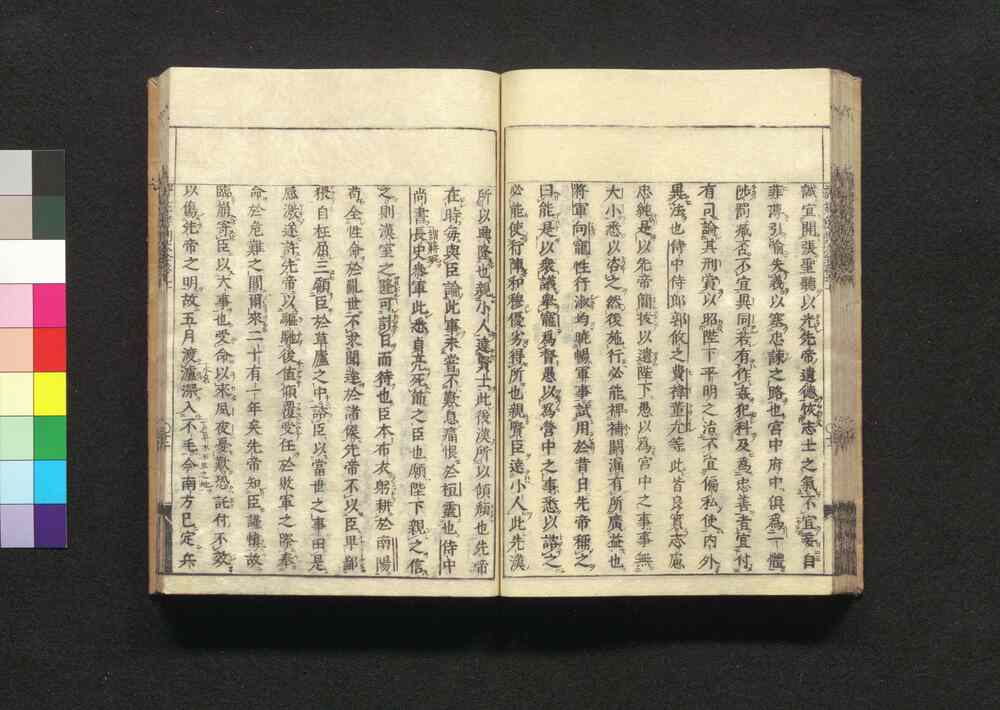 誠宜開張聖聽以光先帝遺德恢志士之氣不宜妄自
菲薄引喻失義以塞忠諫之路也宮中府中俱爲一體
陟罰臧否不宜異同若有作姦犯科及爲忠善者宜付
有司論其刑賞以昭陛下平明之治不宜偏私使內外
異法也侍中侍郎郭攸之費禕董允等此皆良實志慮
忠純是以先帝簡拔以遺陛下愚以爲宮中之事事無
大小悉以咨之然後施行必能裨補闕漏有所廣益也
將軍向寵性行淑均曉暢軍事試用於昔日先帝稱之
曰能是以衆議擧寵爲督愚以爲營中之事悉以諮之
必能使行陣和穆優劣得所也親賢臣遠小人此先漢
所以興隆也親小人遠賢士此後漢所以傾頹也先帝
在時每與臣論此事未嘗不歎息痛恨於桓靈也侍中
尚書長史參軍此悉貞亮死節之臣也願陛下親之信
之則漢室之隆可計日而待也臣本布衣躬耕於南陽
苟全性命於亂世不求聞達於諸侯先帝不以臣卑鄙
猥自枉屈三顧臣於草廬之中諮臣以當世之事由是
感激遂許先帝以驅馳後値傾覆受任於敗軍之際奉
命於危難之間爾來二十有一年矣先帝知臣謹愼故
臨崩寄臣以大事也受命以來夙夜憂歎恐託付不效
以傷先帝之明故五月渡瀘深入不毛今南方已定兵